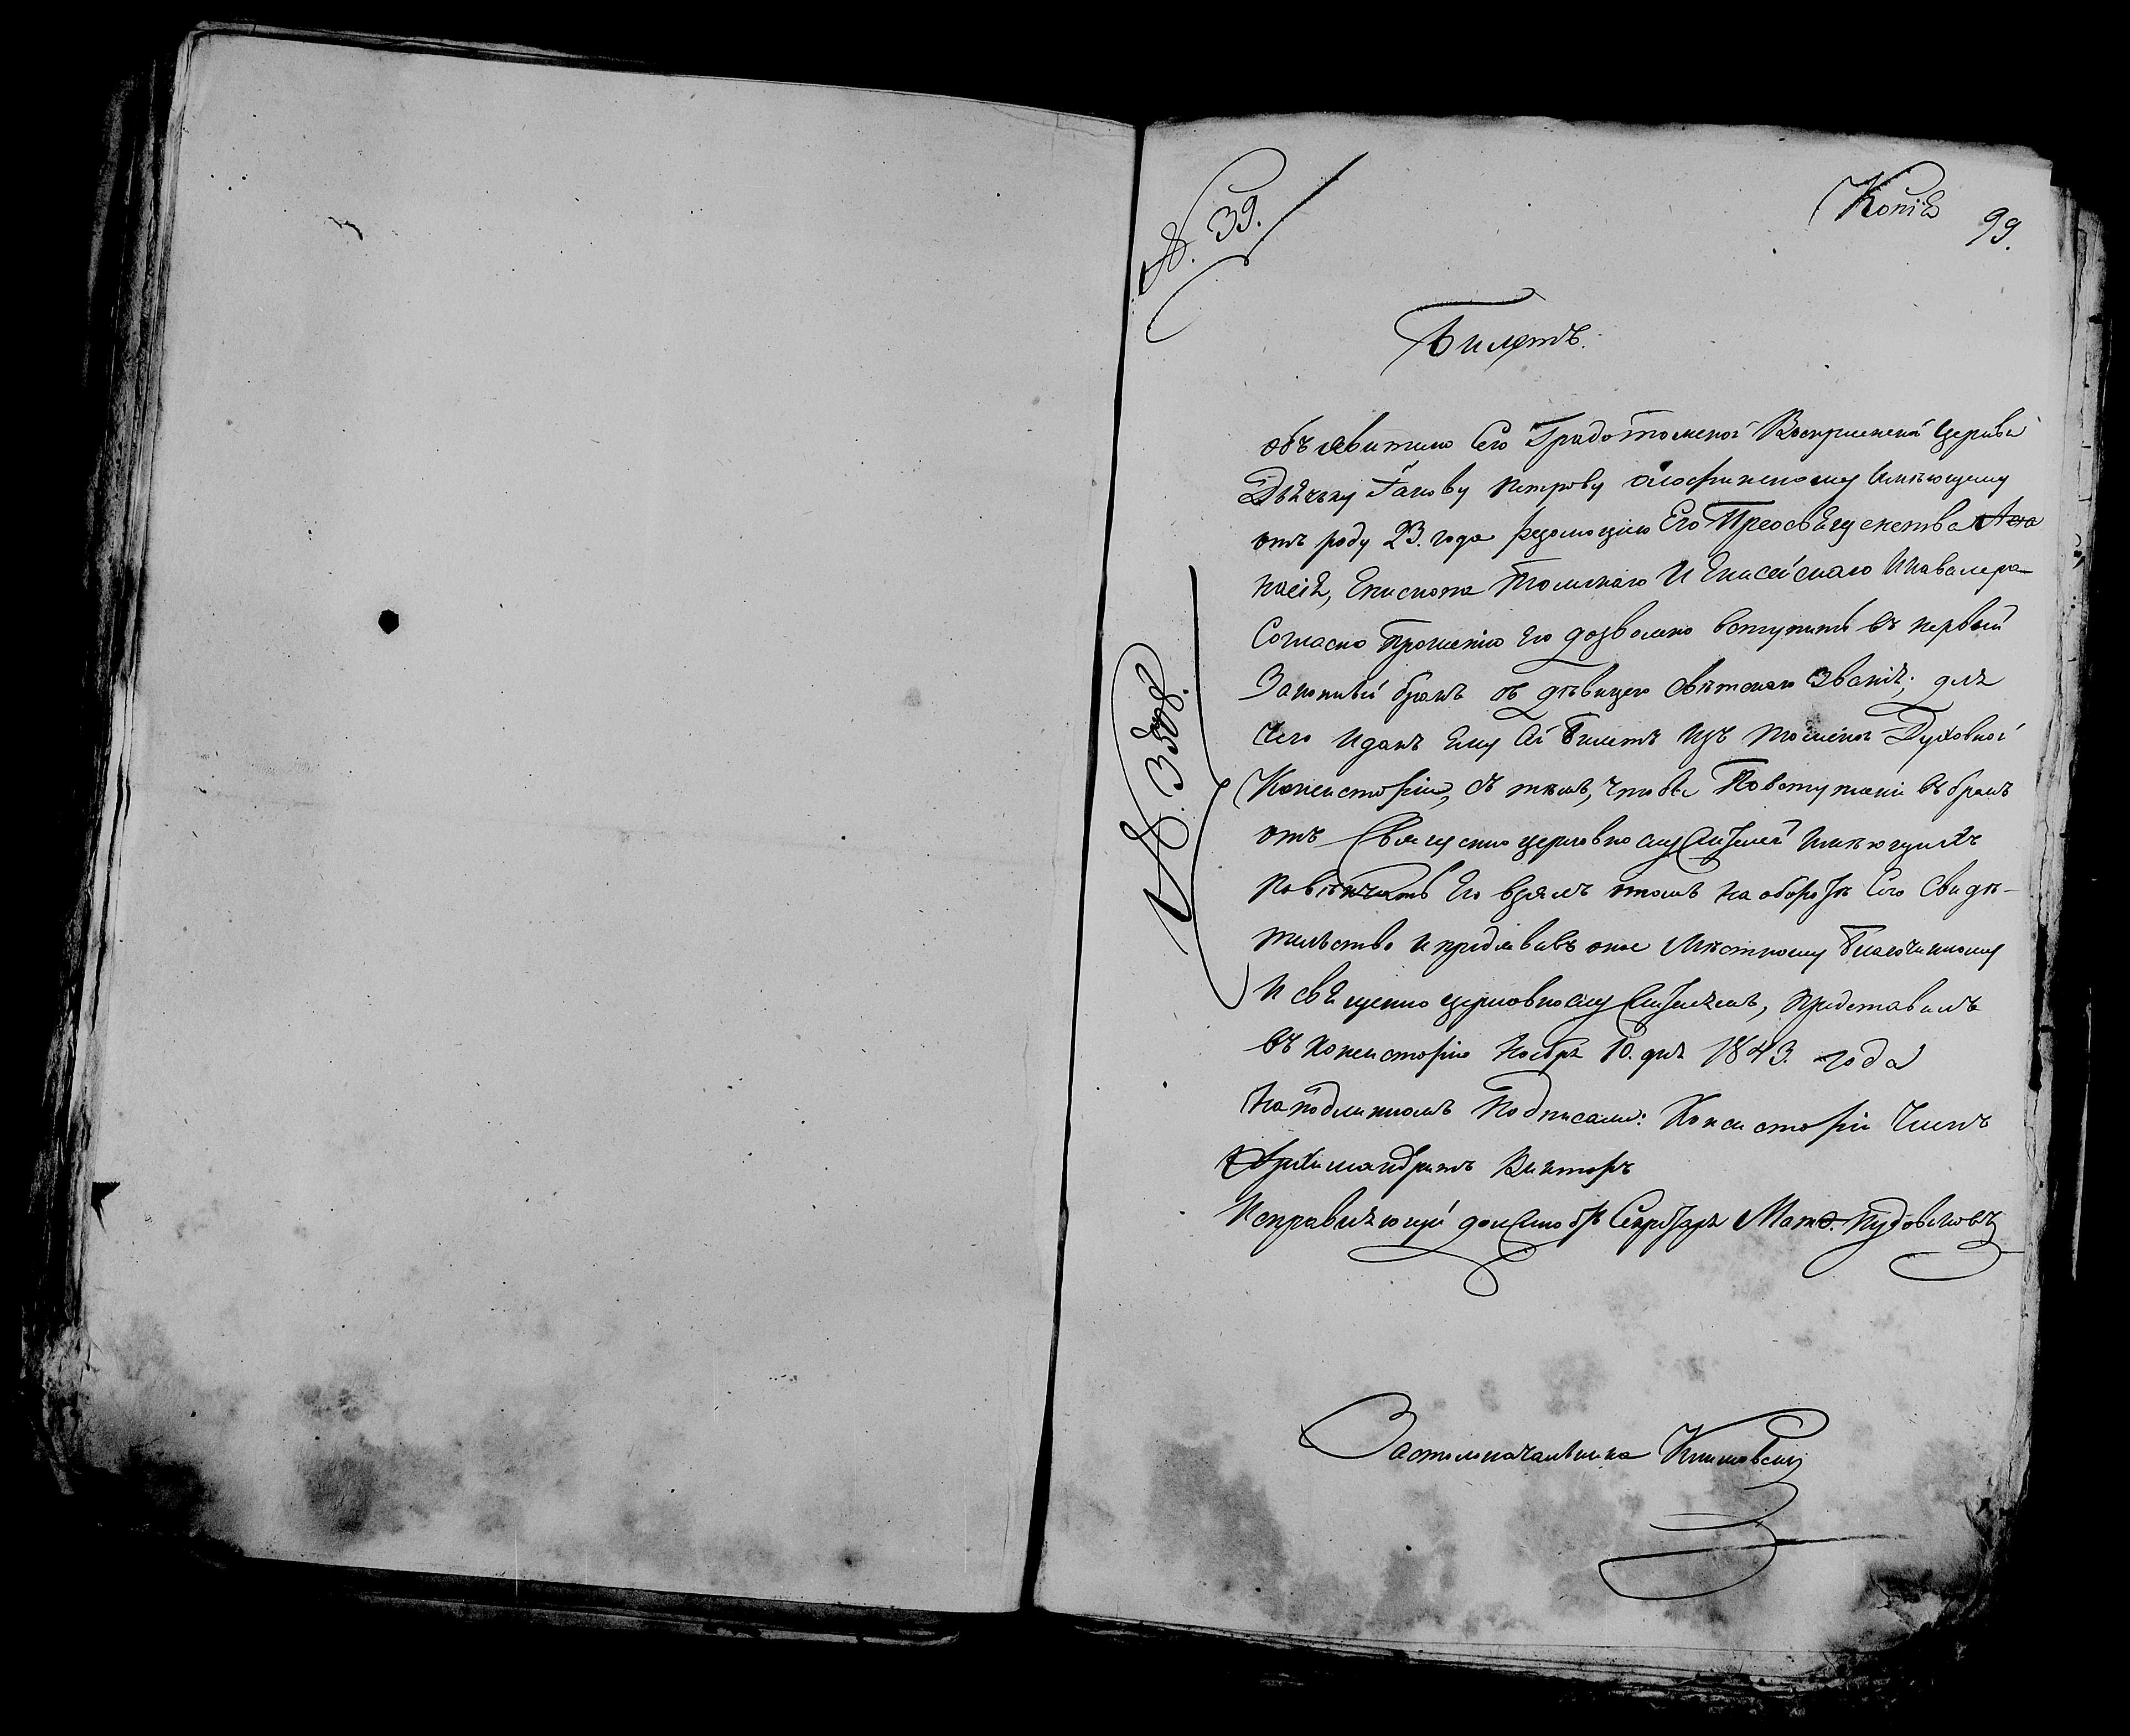 №. 39.
Копія
99.
Билетъ.
объявителю сего Градотомской Воскресенской Церкви
Дьячку Іакову Петрову имѣющему
отъ роду 23. года резолюціею Его Преосвященства Аѳа
насія, Епископа Томскаго и Енисейскаго и Кавалера
Согласно прошенію его дозволено вступить въ первый
Законный бракъ съ дѣвицею свѣтскаго званія; для
чего и данъ ему сей билетъ изъ Томской Духовной
Консисторіи, съ тѣмъ, чтобы по вступленіи въ бракъ
отъ Священно церковно служителей имѣющихъ
повѣнчать его взялъ о томъ на оборотѣ сего свидѣ-
тельство и предъявивъ оное Мѣстному Благочинному
и священно церковно служителямъ, представилъ
въ консисторію Ноября 10. дня 1843. года
На подлинномъ подписали: Консисторіи Членъ
Архимандритъ Викторъ
Исправляющій должность Секретаря Матѳ. Пудовиковъ
№. 3508.
За столоначальника